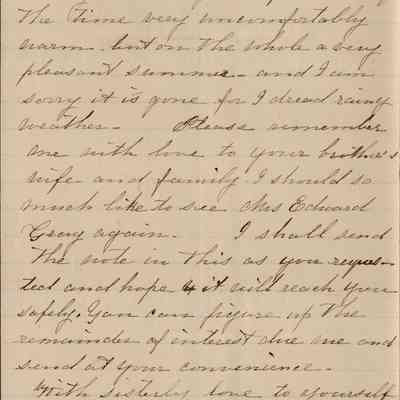 the time very uncomfortably
warm - but on the whole a very
pleasant summer - and I am
sorry it is gone for I dread rainy
weather - Please remember
me with love to your brother's
wife and family I should so
much like to see Mrs Edward
Gray again. I shall send
the note in this as you reques-
ted and hope it will reach you
safely. You can figure up the
remainder of interest due me and
send at your convenience -
With sisterly love to yourself